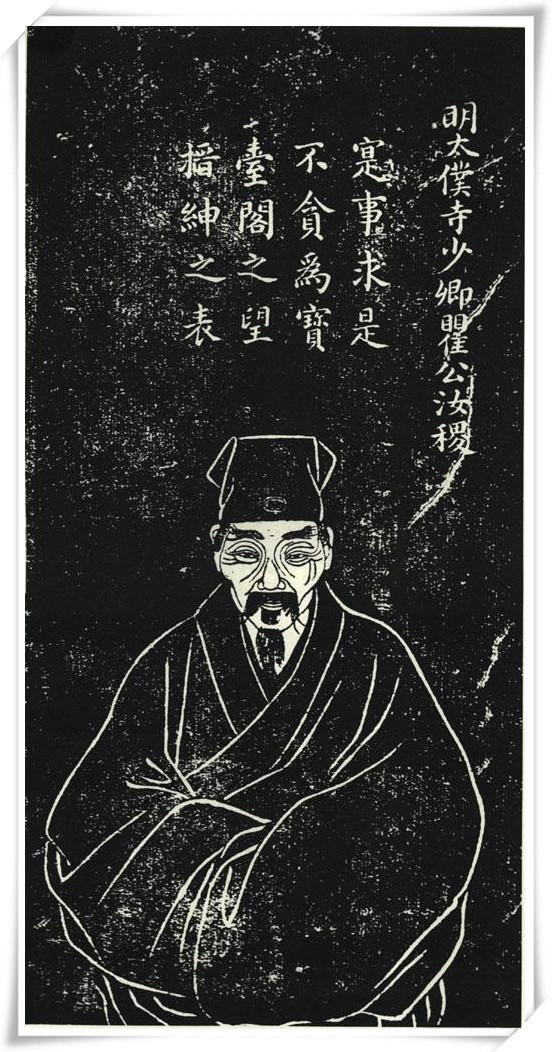 明太僕寺少卿瞿公汝稷
寔事求是
不貪爲寶
臺閣之望
搢紳之表